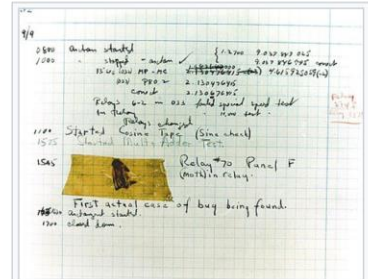 9/9
0800 antan started
1000 " stopped - antan ✓ { 1.2700 9.037 847 025
9.037 846 995 correct
13"uc (032) MP - MC 2.130476415 4.615925059(-2)
033 PRO 2 2.130476415
correct 2.130676415
Relays 6-2 in 033 failed special speed test
in Relay
Relays changed
1100 Started Cosine Tape (Sine check)
1525 Started Multi Adder Test.
1545 Relay #70 Panel F
(moth) in relay.
First actual case of bug being found.
antangent started.
1700 closed down.